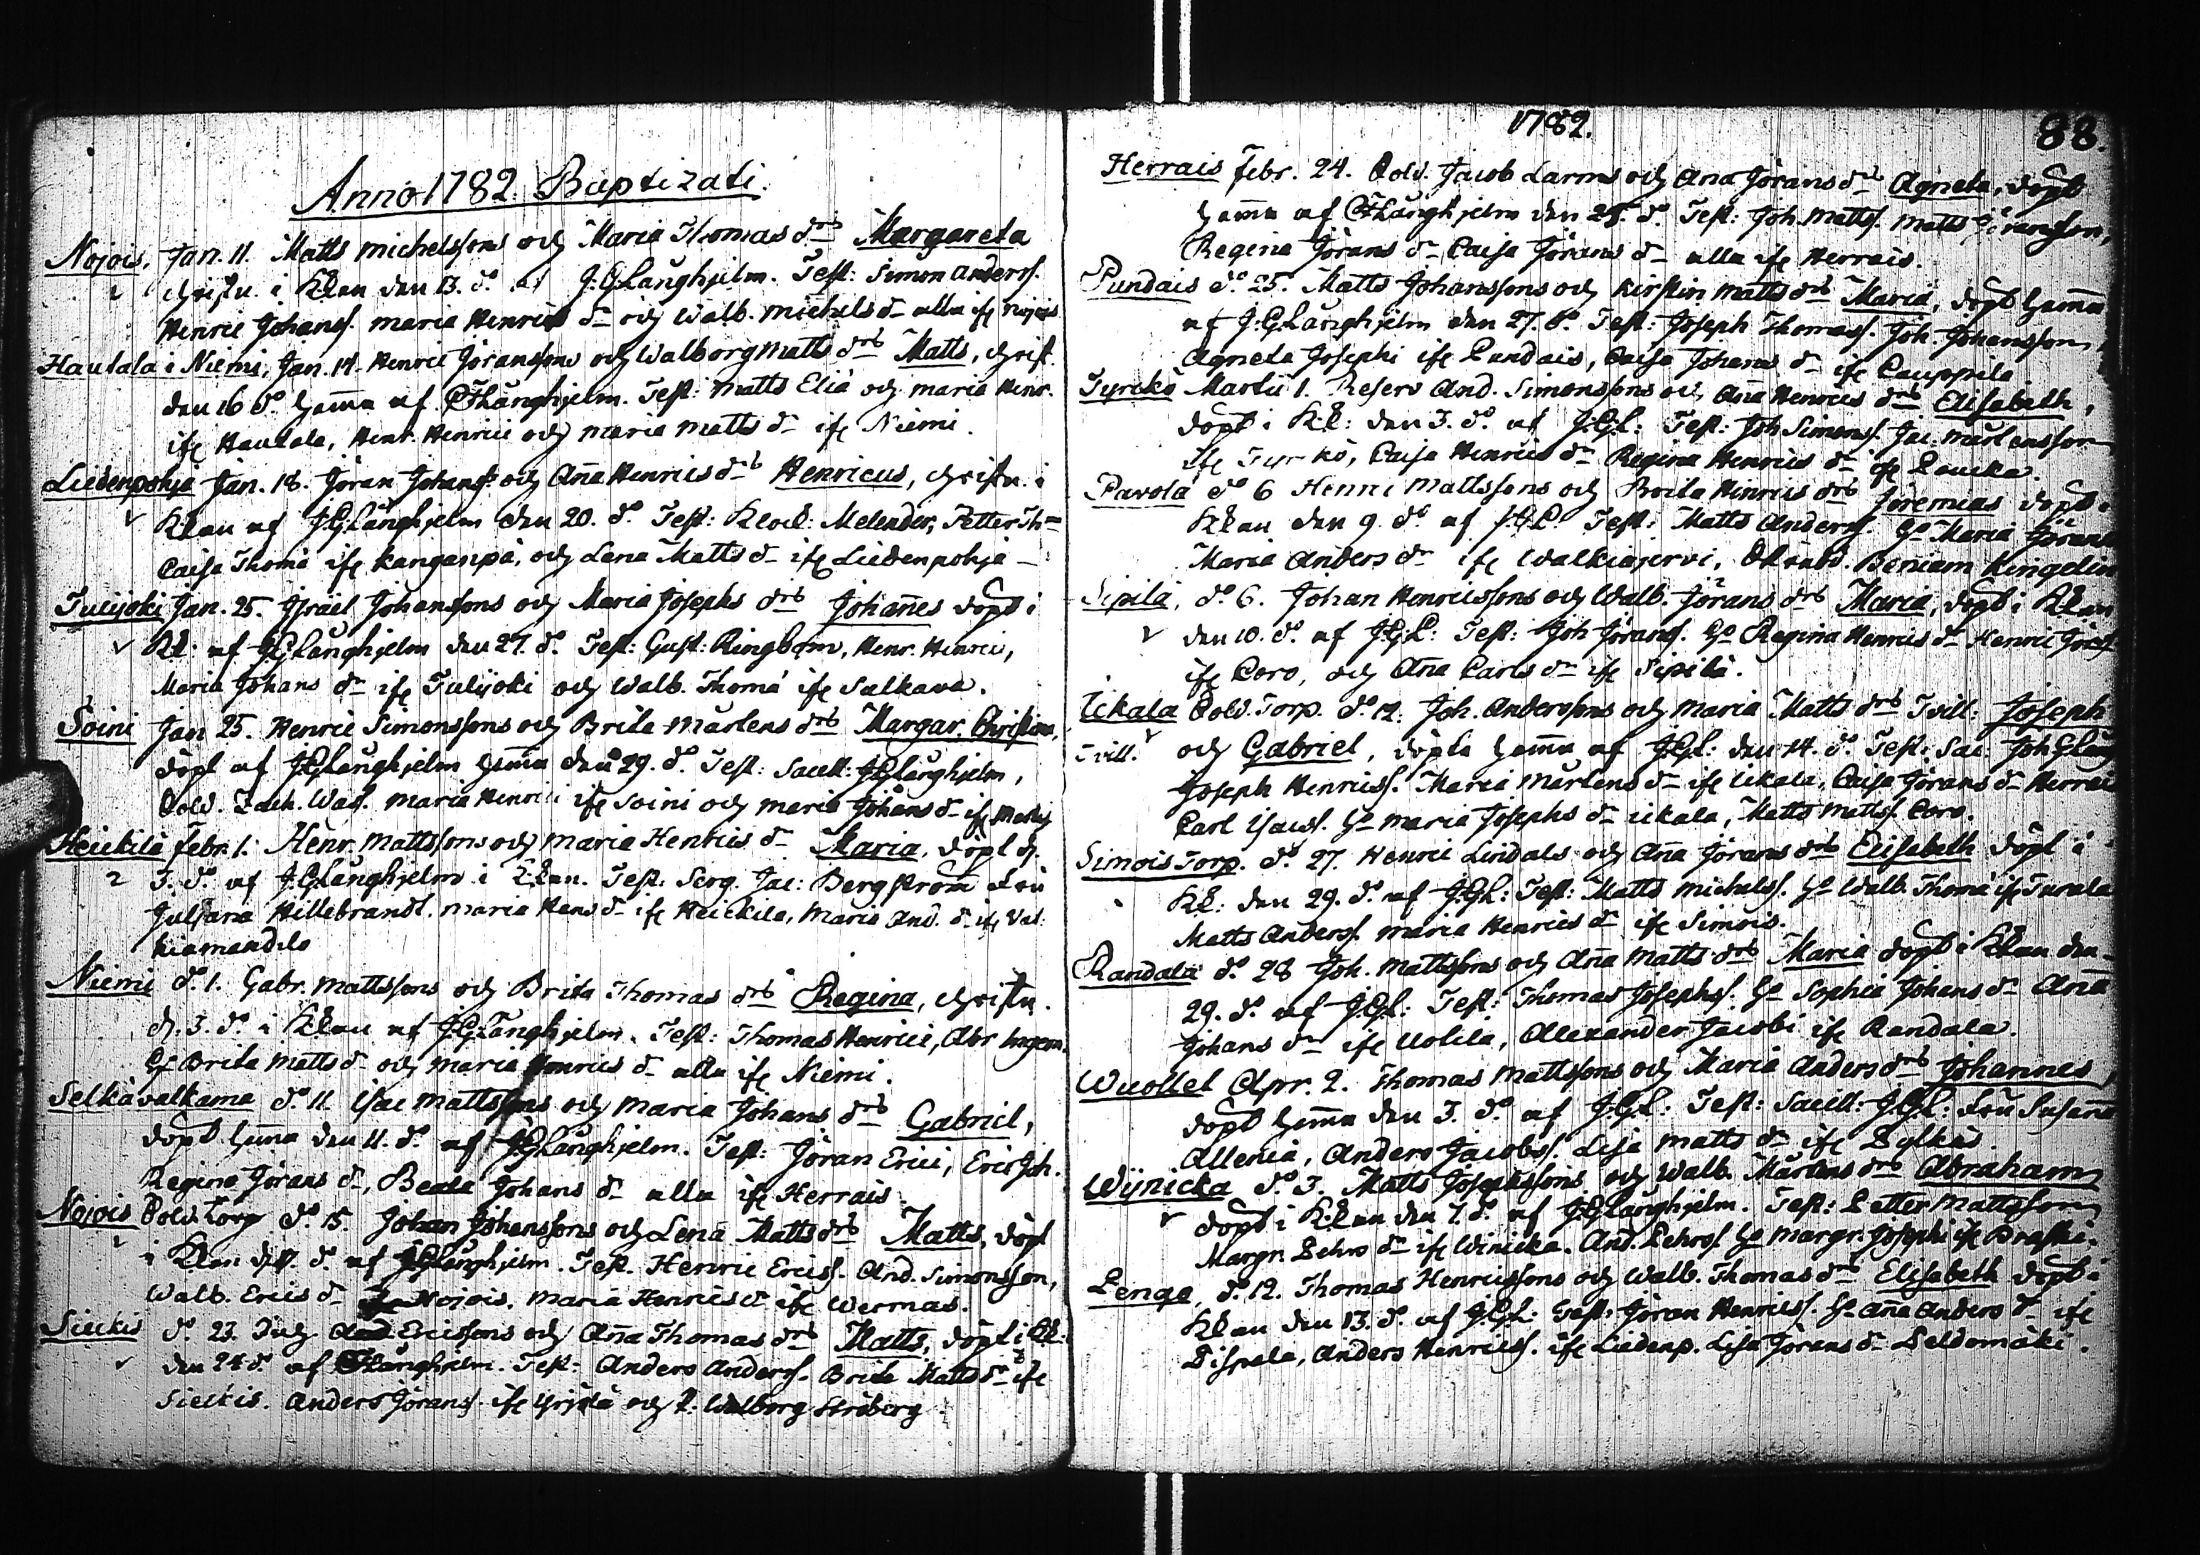 Anno 1782. Baptizati.
Nojois, Jan. 11. Matts Michelssons och Maria Thomas drs Margareta
christn. i Kkan den 13. do af J.G.Långhjelm. Test: Simon Anderss.
Henric Johanss. Maria Henrics dr och Walb. Michels dr alla ifr Nojois
Hautala i Niemi, Jan. 14. Henric Jöranssons och Walborg Matts drs Matts, christ.
den 16 do hemma af J.G.Långhjelm. Test: Matts Eliæ och Maria Henr.
ifr Hautala, Henr. Henrici och Maria Matts dr ifr Niemi.
Liedenpohja Jan. 18. Jöran Johanss: och Aña Henrics drs Henricus, christn. i
Kkan af J.G.Långhjelm den 20. do Test: Klock: Melender, Petter Th=
Caisa Thomæ ifr Kangaspä, och Lena Matts dr ifr Liedenpohja
Tulijoki Jan. 25. Israel Johanssons och Maria Josephs drs Johañes döpt i
Kk: af J.G.Långhjelm den 27. do Test: Gust: Ringbom, Henr. Henrici,
Maria Johans dr ifr Tulijoki och Walb. Thomæ ifr Salkava.
Soini Jan 25. Henric Simonssons och Brita Mårtens drs Margar. Christina,
döpt af J.G.Långhjelm hema den 29. do Test: Sacell: J.G.Långhjelm,
Sold. Zach. Wass. Maria Henrici ifr Soini och Maria Johans dr ifr
Heickilä Febr. 1. Henr. Mattssons och Maria Henrics dr Maria, döpt d.
3. do af J.G.Långhjelm i Kkan. Test: Serg. Jac: Bergström Fru
Juliana Hillebrandt. Maria Hans dr ifr Heickilä, Maria And. dr ifr Val-
kiamandilo
Niemi do 1. Gabr. Mattssons och Brita Thomas drs Regina, christn.
d. 3. do i Kkan af J.G.Långhjelm. Test: Thomas Henrici, Abr
Brita Matts dr och Maria Henrics dr alla ifr Niemi.
Selkävalkama do 11. Isac Mattssons och Maria Johans drs Gabriel,
döpt hema den 11. do af J.G.Långhjelm. Test: Jöran Erici, Eric Joh.
Regina Jörans dr, Beata Johans dr alla ifr Herrais.
Nojois Sold. Torp do 15. Johan Johanssons och Lena Matts drs Matts, döpt
i Kkan do af J.G.Långhjelm. Test. Henric Ericss. And. Simonsson,
Walb. Erics dr Nojois. Maria Henrics dr ifr Wermas.
Sieckis do 23. And Ericssons och Aña Thomas drs Matts, döpt i Kk:
den 24 do af J.G.Långhjelm. Test: Anders Anderss. Brita Matts dr ifr
Sieckis. Anders Jöranss. ifr Yrjälä och Walborg
1782.
88.
Herrais Febr. 24. Sold. Jacob Larms och Aña Jörans drs Agneta, döpt
hema af J.G.Långhjelm den 25. do Test: Joh. Mattss. Matts Göransson,
Regina Jörans dr Caisa Jörans dr alla ifr Herrais.
Pundais do 25. Matts Johanssons och Kirstin Matts drs Maria, döpt hema
af J.G.Långhjelm den 27. do Test: Joseph Thomass. Joh. Johansson,
Agneta Josephi ifr Pundais, Caisa Johans dr ifr Cauppila
Tyrckö Martii 1. Reserv And. Simonssons och Aña Henrics drs Elisabeth,
döpt i Kk: den 3. do af J.G.L: Test: Joh Simonss. Jac: Mårtensson
ifr Tyrckö, Caisa Henrics dr Regina Henrics dr ifr Loucka.
Pavola do 6 Henric Mattssons och Brita Hinrics drs Jeremias döpt i
Kkan den 9. do af J.G.L: Test: Matts Anderss. Maria Görans
Maria Anders dr ifr Walkiajervi, Beniam Kingelin
Sipilä, do 6. Johan Henricssons och Walb. Jörans drs Maria, döpt i Kkan
den 10. do af J.G.L: Test: Joh Jöranss. Regina Henrics dr Henric Jöranss
ifr Coro, och Aña Carls dr ifr Sipilä.
Uckala Sold. Torp. do 12. Joh. Anderssons och Maria Matts drs Tvill: Joseph
Tvill. och Gabriel, döpta hema af J.G.L: den 14. do Test: Sac. Joh G Lång
Joseph Henricss. Maria Mårtens dr ifr Uckala, Caisa Jörans dr Herrais
Carl Isacss. Maria Josephs dr Uckala, Matts Mattss. Coro.
Simois Torp. do 27. Henric Lindals och Aña Jörans drs Elisabeth döpt i
Kk: den 29. do af J.G.L: Test: Matts Michelss. Walb. Thomæ ifr Turala
Matts Anderss. Maria Henrics dr ifr Simois.
Randala do 28 Joh. Mattssons och Aña Matts drs Maria döpt i Kkan den
29. do af J.G.L: Test: Thomas Josephss. Sophia Johans dr Aña
Johans dr ifr Uolila, Alexander Jacobi ifr Randala.
Wuollet Apr. 2. Thomas Mattssons och Maria Anders drs Johannes,
döpt hema den 3. do af J.G.L: Test: Sacell: J.G.L: Fru Susaña
Allenia, Anders Jacobss. Lisa Matts dr ifr Pylkäs.
Wijnicka do 3. Matts Josephssons och Walb. Mårtens drs Abraham
döpt i Kkan den 7. do af J.G.Långhjelm. Test: Petter Mattsson
Margr. Pehrs dr ifr Winicka. And. Pehrss. Margr. Josephi ifr Praski.
Lenqe, do 12. Thomas Henricssons och Walb. Thomas drs Elisabeth döpt i
Kkan den 13. do af J.G.L: Test: Jöran Henricss. Aña Anders dr ifr
Pispala, Anders Henricss. ifr Liedenp. Lisa Jörans dr Peldomäki.